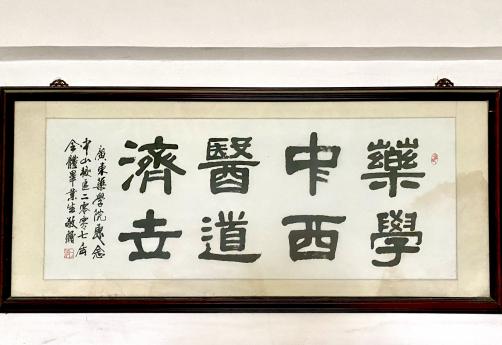 藥學
中西
醫道
濟世
廣東藥學院惠念
中山校區二零零七年
全體畢業生敬贈